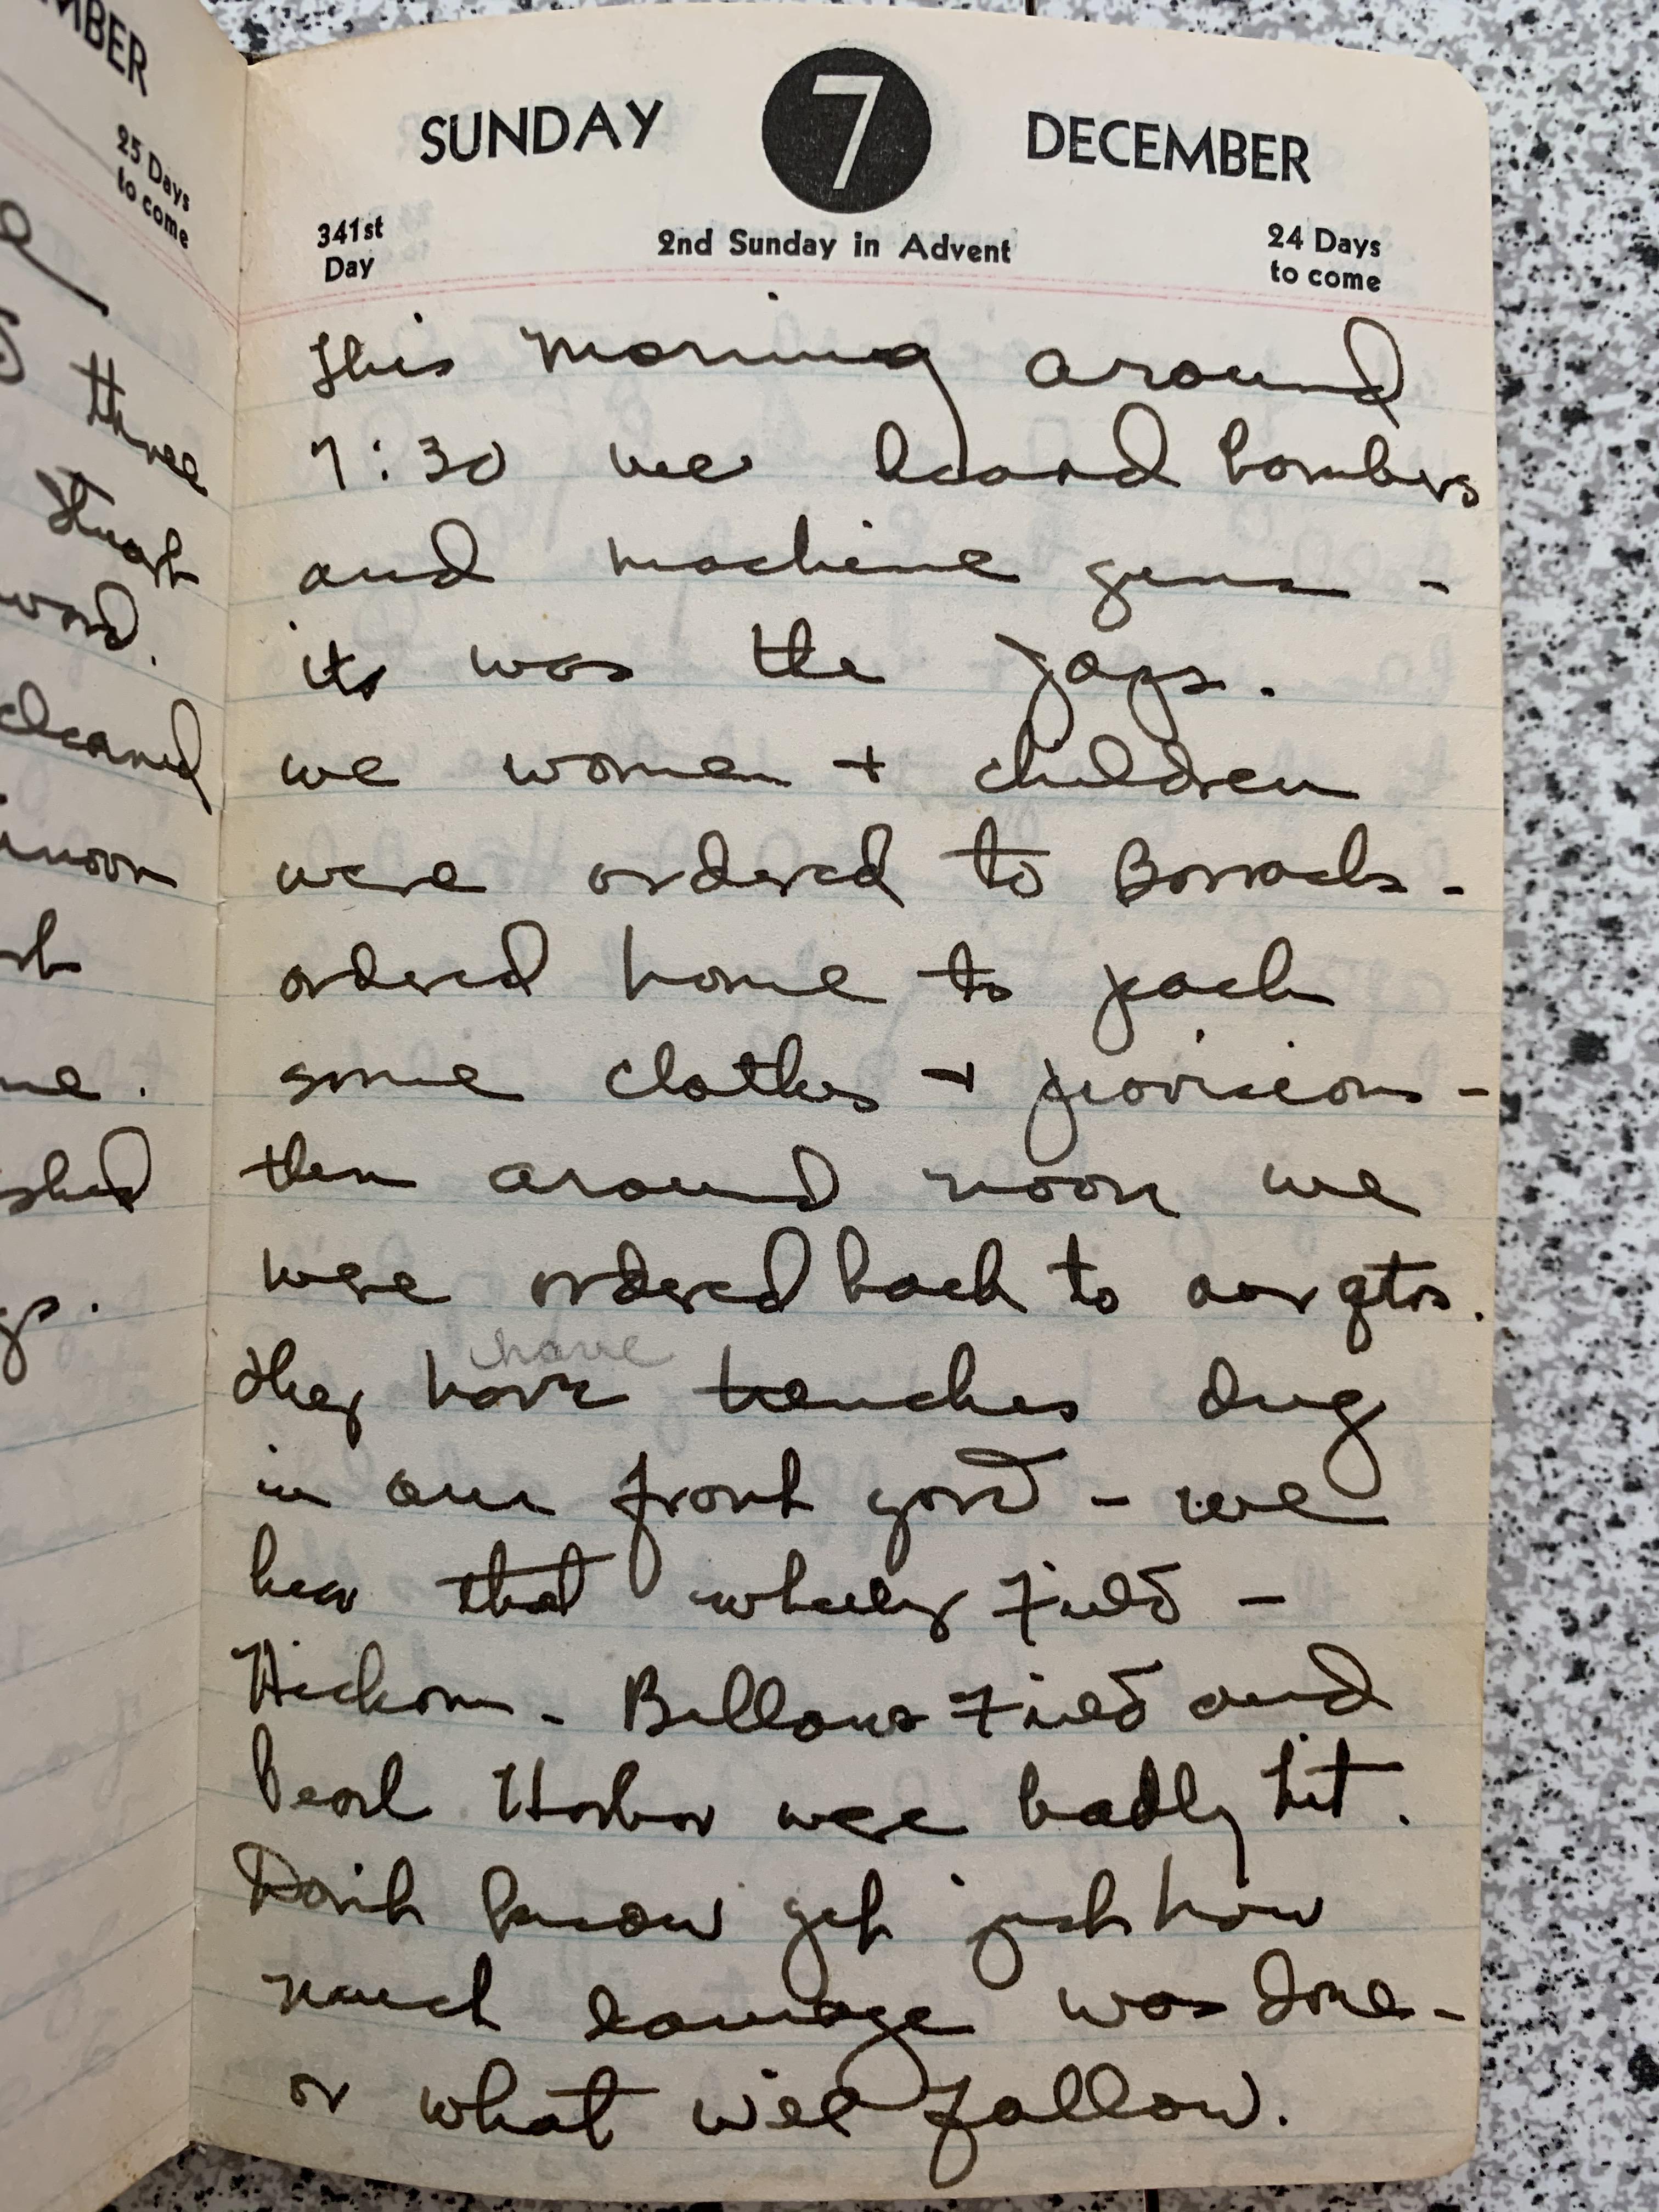 MBER
25 Days
to come
three
word.
cleaned
SUNDAY 7 DECEMBER
341st
Day
2nd Sunday in Advent
24 Days
to come
This morning around
7:30 we heard bombers
and machine guns -
its was the japs.
we women + children
were ordered to Barracks -
ordered home to pack
some clothes + provisions -
then around noon we
were ordered back to our qtrs.
have
they have trenches dug
in our front yard - we
hear that wheeler Field -
Hickam - Bellows Field and
Pearl Harbor were badly hit.
Don't know yet just how
much damage was done -
or what will follow.